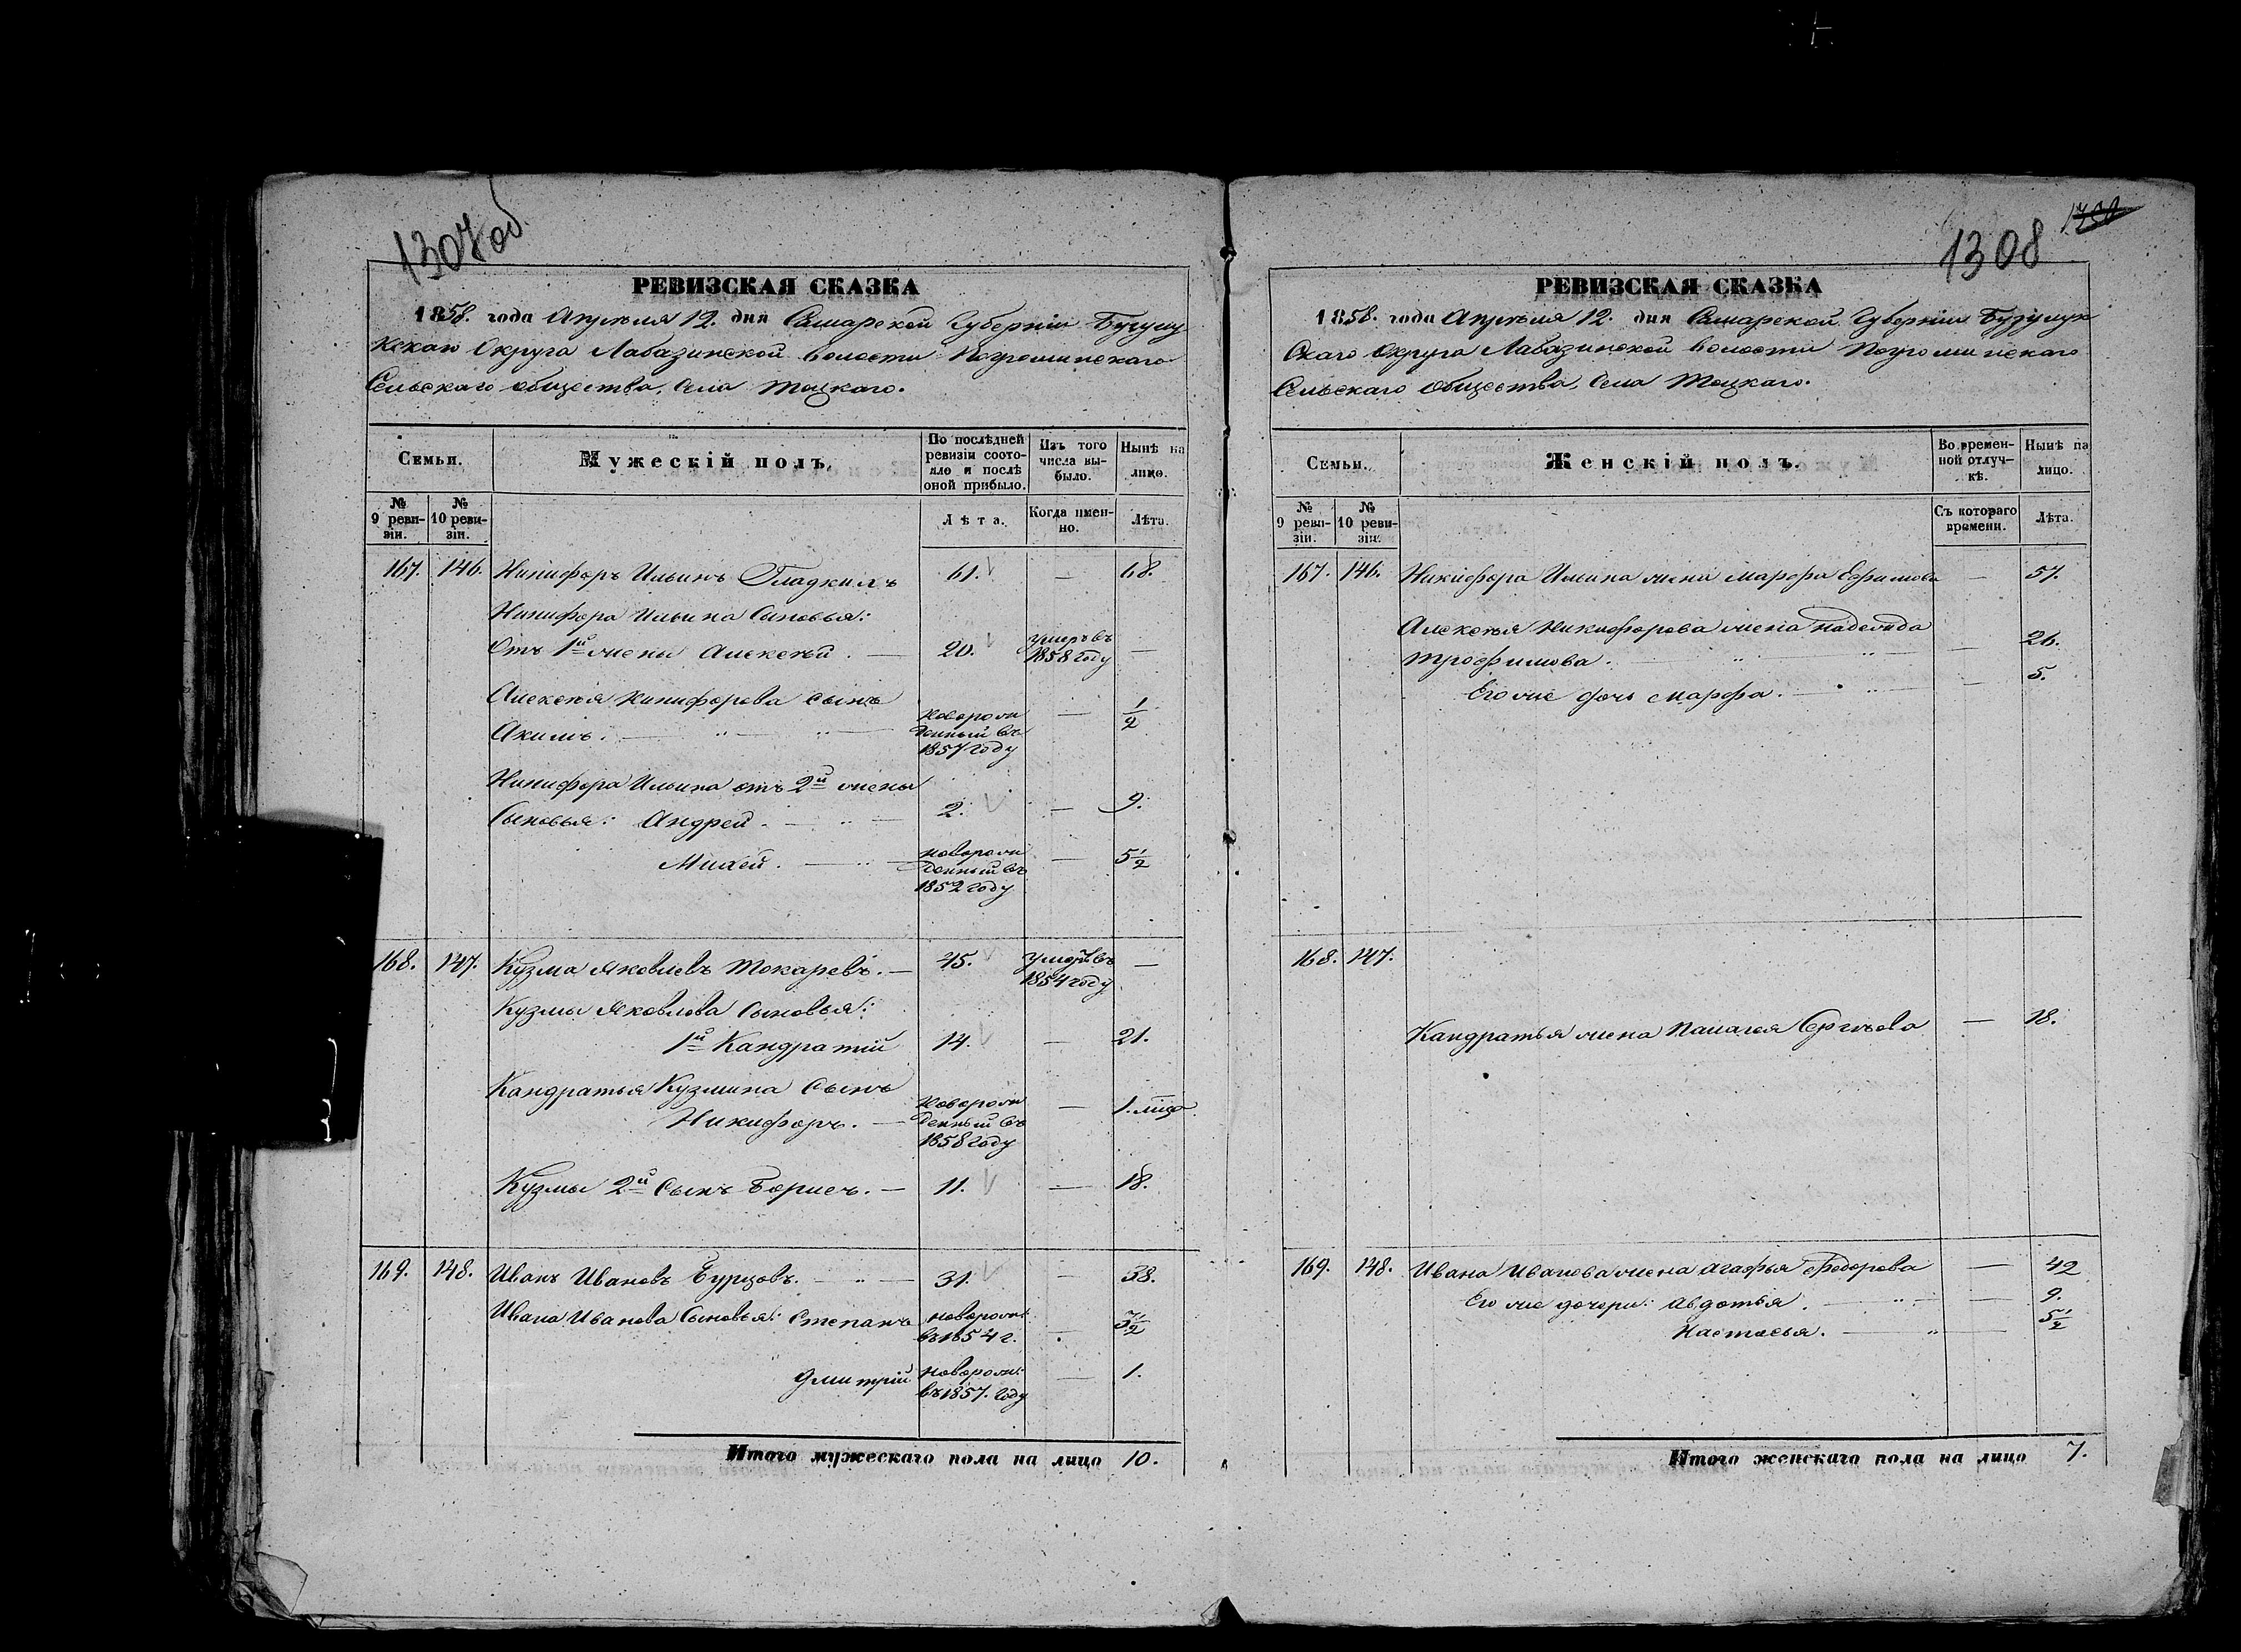 1307 об.
РЕВИЗСКАЯ СКАЗКА
1858. года Апреля 12. дня Самарской Губернiи Бузулу
кскаго Округа Лабазинской волости Погроминскаго
Сельскаго общества, Села Тоцкаго.
Семьи.
Мужескiй полъ.
По послѣдней ревизiи состояло и послѣ оной прибыло.
Изъ того числа выбыло.
Нынѣ на лицо.
№ 9 ревизiи.
№ 10 ревизiи.
Лѣта.
Когда именно.
Лѣта.
167. 146. Никифоръ Ильинъ Гладкихъ 61. — 68.
Никифора Ильина Сыновья:
Отъ 1й жены Алексѣй. — 20. умеръ въ 1858 году —
Алексѣя Никифорова сынъ
Акимъ. — новорожденный въ 1857 году — 1/2
Никифора Ильина отъ 2й жены
Сыновья: Андрей. — 2. — 9.
Михей. — новорожденный въ 1852 году — 5 1/2
168. 147. Кузма Яковлевъ Токаревъ. — 45. умеръ въ 1854 году —
Кузмы Яковлева Сыновья:
1й Кандратiй 14. — 21.
Кандратья Кузмина Сынъ
Никифоръ. — новорожденный въ 1858 году — 1. мца
Кузмы 2й Сынъ Борисъ. — 11. — 18.
169. 148. Иванъ Ивановъ Бурцовъ. — 31. — 38.
Ивана Иванова Сыновья: Степанъ новорож: въ 1854 г. — 3 1/2
Дмитрiй новорож: въ 1857. году — 1.
Итого мужескаго пола на лицо 10.
1308
РЕВИЗСКАЯ СКАЗКА
1858. года Апреля 12. дня Самарской Губернiи Бузулук
Скаго округа Лабазинской волости Погроминскаго
Сельскаго Общества, Села Тоцкаго.
Семьи.
Женскiй полъ.
Во временной отлучкѣ.
Нынѣ на лицо.
№ 9 ревизiи.
№ 10 ревизiи.
Съ котораго времени.
Лѣта.
167. 146. Никифора Ильина жена Марфа Ефимова — 57.
Алексѣя Никифорова жена Надежда
Трофимова. — 26.
Его же дочь Марфа. — 5.
168. 147.
Кандратья жена Палагея Сергѣева — 18.
169. 148. Ивана Иванова жена Агафья Федорова — 42
Его же дочери: Авдотья. — 9.
Настасья. — 5 1/2
Итого женскаго пола на лицо 7.